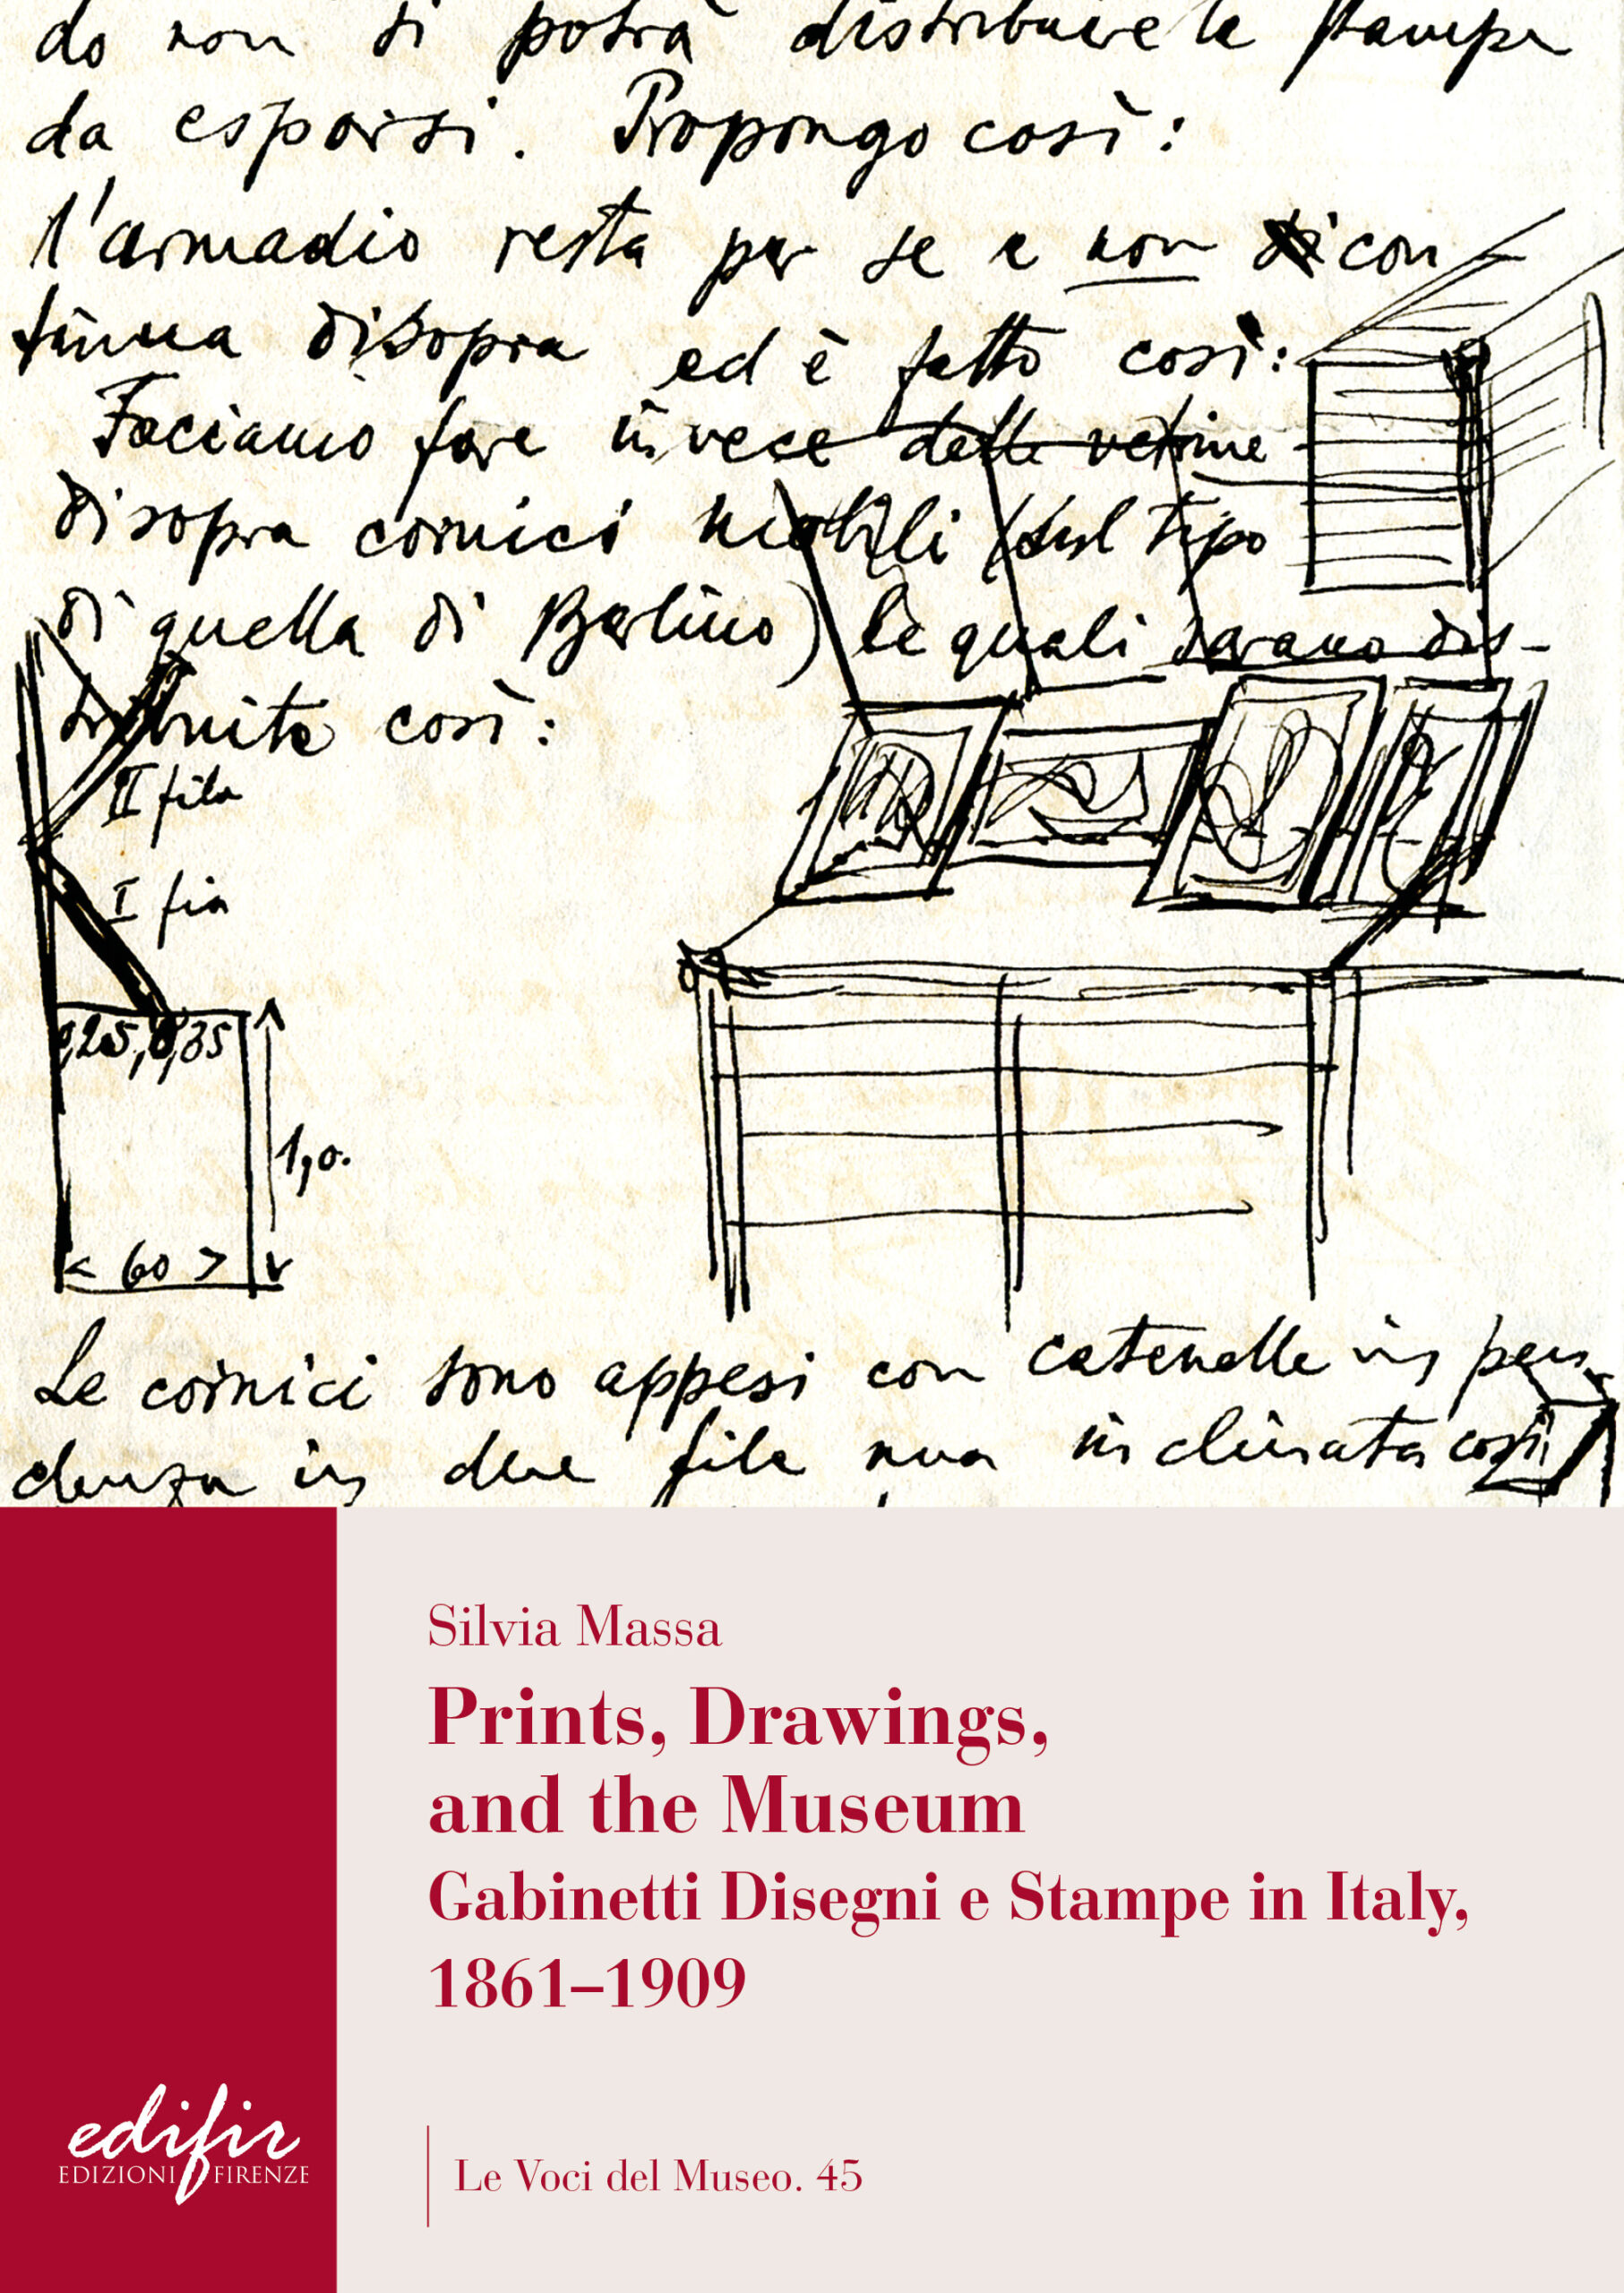 do non si potrà distribuire le stampe
da esporsi. Propongo così:
l'armadio resta per se e non con
tinua disopra ed è fatto così:
Faciamo fare invece delle vetrine
disopra cornici mobili (sul tipo
di quella di Berlino) le quali sarano dis-
tribuite così:
II fila
I fila
0,25, 0,35
1,0.
< 60 >
Le cornici sono appesi con catenelle in pen
denza in due file una inclinata così
Silvia Massa
Prints, Drawings,
and the Museum
Gabinetti Disegni e Stampe in Italy,
1861–1909
edifir
EDIZIONI FIRENZE
Le Voci del Museo. 45